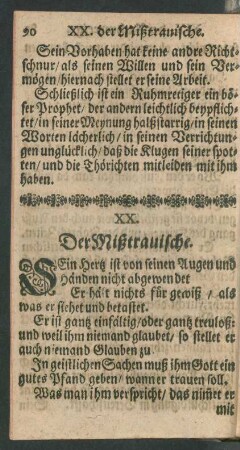 90 XX. der Mißtrauische.
Sein Vorhaben hat keine andre Richt
schnur/ als seinen Willen und sein Ver-
mögen/ hiernach stellet er seine Arbeit.
Schließlich ist ein Ruhmreiger ein bö-
ser Prophet/ der andern leichtlich beypflich-
tet/ in seiner Meynung halßstarrig/ in seinen
Worten lächerlich/ in seinen Verrichtun-
gen unglücklich/ daß die Klugen seiner spot-
ten/ und die Thörichten mitleiden mit ihm
haben.
XX.
Der Mißtrauische.
SEin Hertz ist von seinen Augen und
Händen nicht abgewendet
Er hält nichts für gewiß/ als
was er siehet und betastet.
Er ist gantz einfältig/ oder gantz treuloß:
und weil ihm niemand glaubet/ so stellet er
auch niemand Glauben zu
In geistlichen Sachen muß ihm Gott ein
gutes Pfand geben/ wann er trauen soll.
Was man ihm verspricht/ das nim̃et er
mit